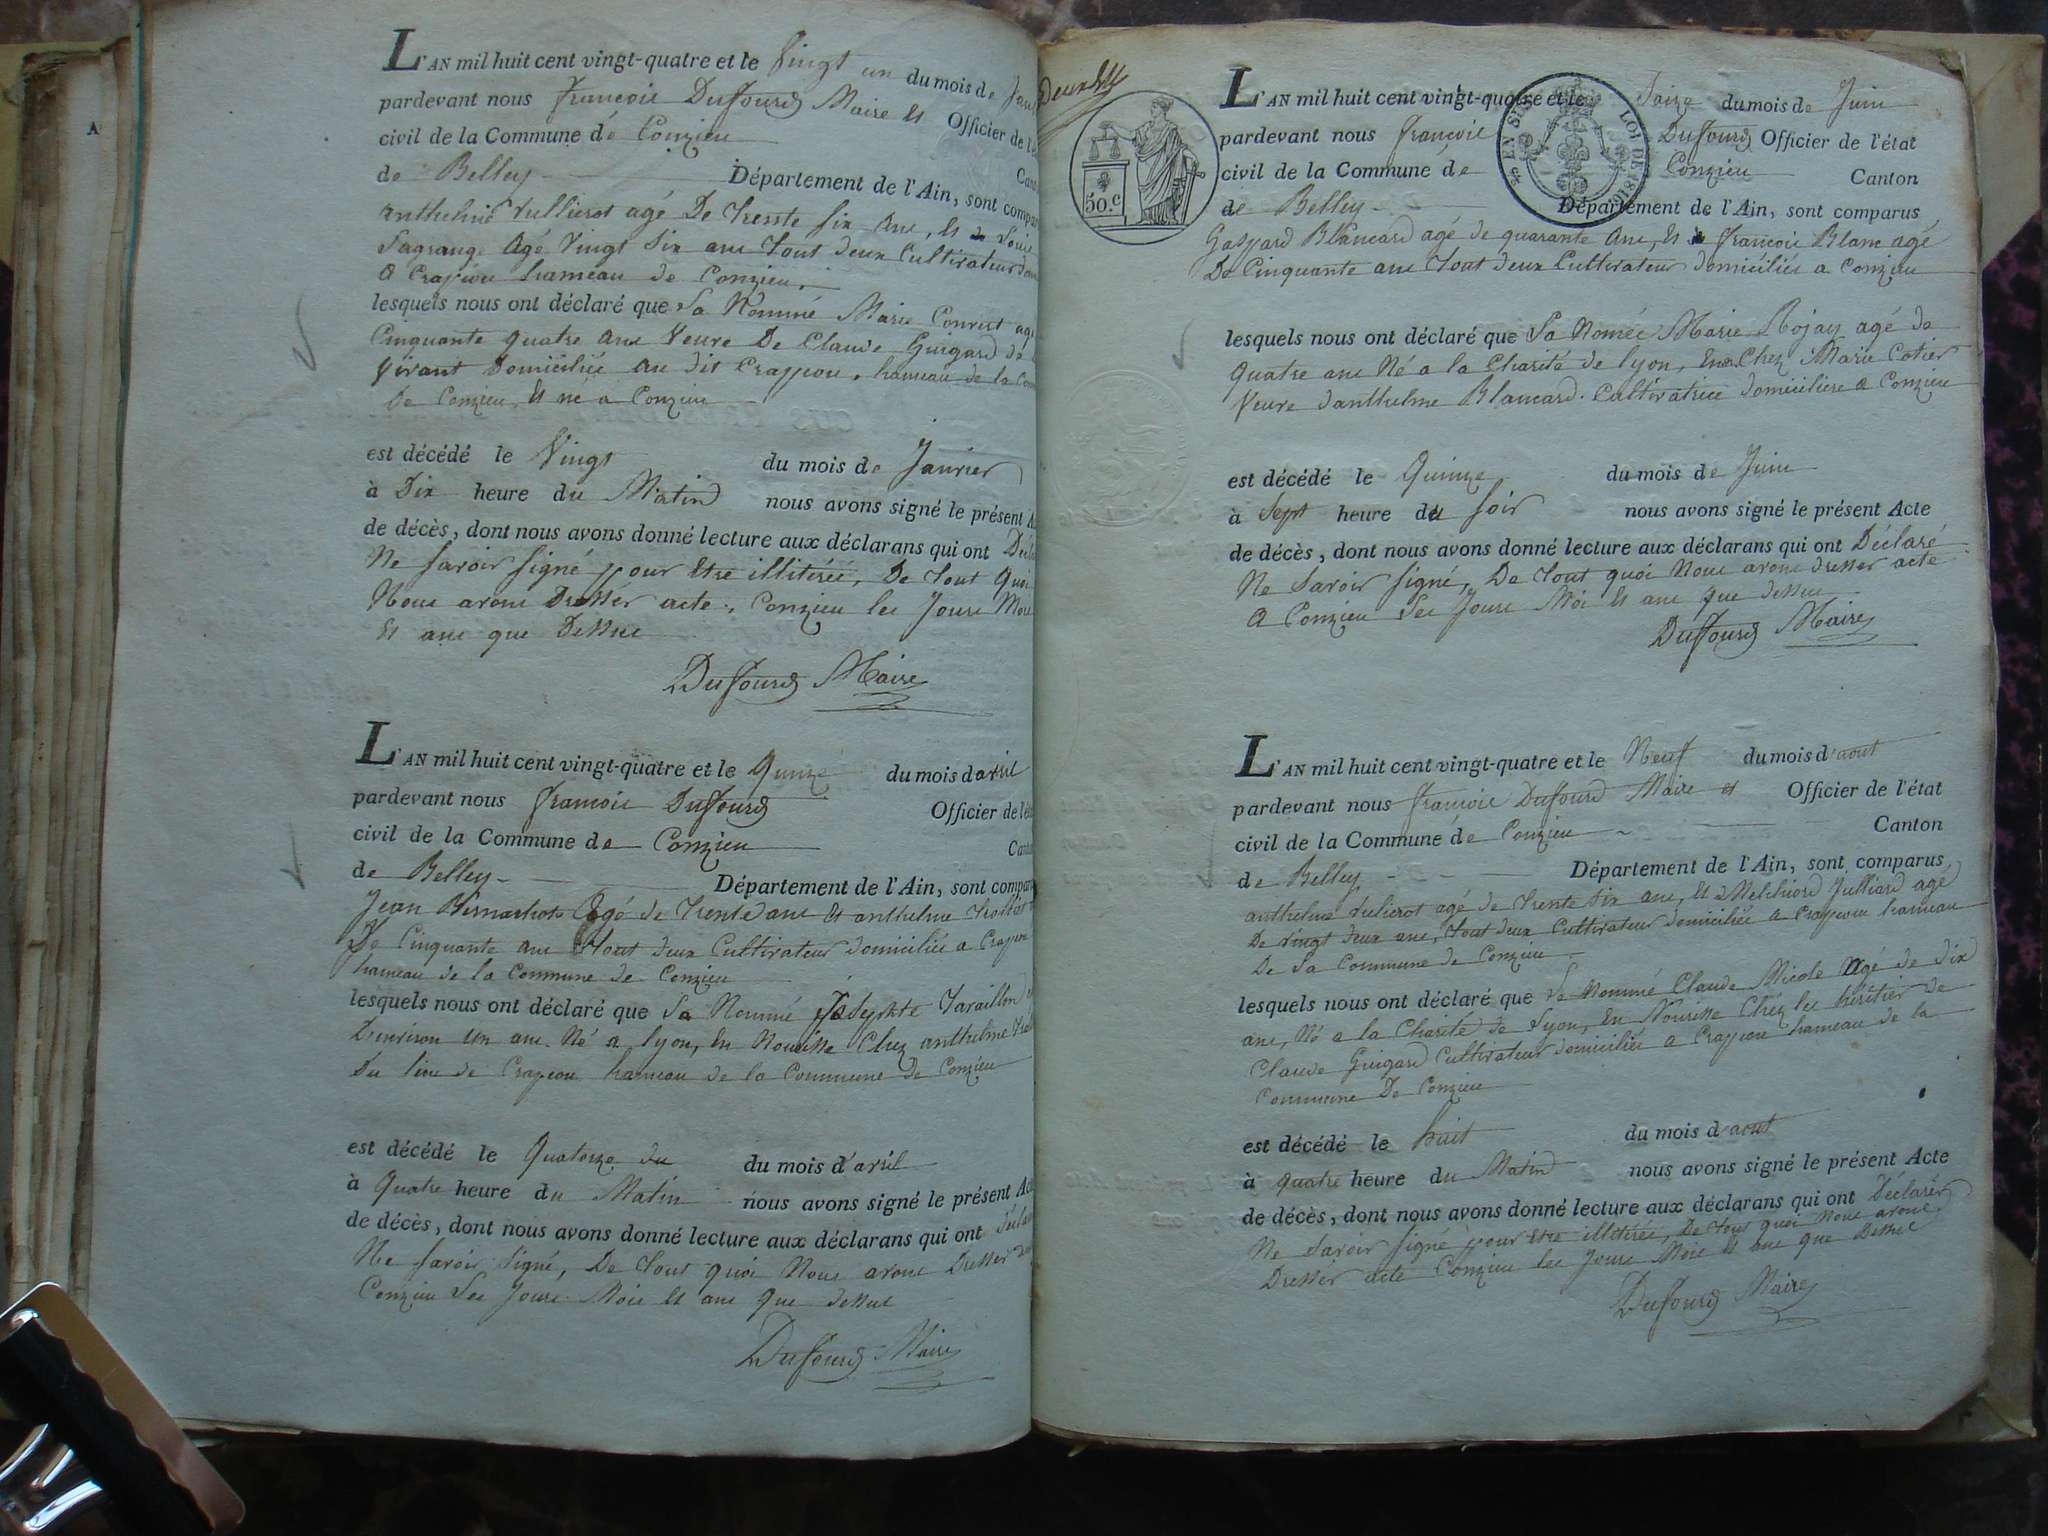 L'AN mil huit cent vingt-quatre et le Vingt un du mois de
pardevant nous francois Duffourd Maire Et Officier de
civil de la Commune dé Conzieu
de Belley Département de l'Ain, sont
anthelme Vullierot agé De trente six ans, Et
Lagrange Agé Vingt six ans tout deux Cultivateur
a Crappou hameau de Conzieu.
lesquels nous ont déclaré que La Nommé Marie
Cinquante quatre ans Veuve De Claude Guigard de
vivant Domiciliée au dit Crappou, hameau de la
de Conzieu, Et né a Conzieu
est décédé le Vingt du mois de Janvier
à Dix heure du Matin nous avons signé le présent
de décès, dont nous avons donné lecture aux déclarans qui ont
Ne savoir signé pour Etre illitérée, De tout Quoi
Nous avons Dresser acte, Conzieu les Jours Mois
Et ans que Dessus
Duffourd Maire
L'AN mil huit cent vingt-quatre et le Quinze du mois d'avril
pardevant nous francois Duffourd Officier de
civil de la Commune de Conzieu
de Belley Département de l'Ain, sont
Jean agé de trente ans Et anthelme
De Cinquante ans tout deux Cultivateur domiciliée a Crappou
hameau de la Commune de Conzieu
lesquels nous ont déclaré que La Nommé
D'environ un ans Né a lyon, En Nourisse Chez anthelme
Du lieu de Crapeou hameau de la Commune de Conzieu
est décédé le Quatorze du du mois d'avril
à Quatre heure du Matin nous avons signé le présent
de décès, dont nous avons donné lecture aux déclarans qui ont
Ne savoir Signé, De tout quoi Nous avons Dresser
Conzieu Les Jours Mois Et ans Que dessus
Duffourd Maire
50.c
EN SUS LOI DE 1816
L'AN mil huit cent vingt-quatre et le Saize du mois de Juin
pardevant nous francois Duffourd Officier de l'état
civil de la Commune dé Conzieu Canton
de Belley Département de l'Ain, sont comparus
Gaspard Blancard agé de quarante Ans, Et francois Blanc agé
De Cinquante ans tout deux Cultivateur domiciliée a Conzieu
lesquels nous ont déclaré que La Nomée Marie Rojay agé de
Quatre ans Né a la Charité de lyon, Chez Marie Cotier
Veuve d'anthelme Blancard. Cultivatrice domiciliere a Conzieu
est décédé le Quinze du mois de Juin
à Sept heure du soir nous avons signé le présent Acte
de décès, dont nous avons donné lecture aux déclarans qui ont Déclaré
Ne Savoir Signé, De tout quoi Nous avons dresser acte
a Conzieu Les Jours Moi Et ans que dessus
Duffourd Maire
L'AN mil huit cent vingt-quatre et le Neuf du mois d'aout
pardevant nous francois Duffourd Maire et Officier de l'état
civil de la Commune dé Conzieu Canton
de Belley Département de l'Ain, sont comparus
anthelme Vulierot agé de trente six ans, Et Melchiord Julliard agé
De vingt deux ans, tout deux Cultivateur domiciliée a Crappou hameau
De La Commune de Conzieu
lesquels nous ont déclaré que Le Nommé Claude Nicole Agé de dix
ans, Né a la Charité de Lyon, En Nourisse Chéz les héritier de
Claude Guigard Cultivateur domiciliée a Crappou hameau de la
Commune De Conzieu
est décédé le huit du mois d'aout
à quatre heure du Matin nous avons signé le présent Acte
de décès, dont nous avons donné lecture aux déclarans qui ont Déclarér
Ne Savoir Signé pour Etre illitérée, De tout quoi Nous avons
Dresser acte Conzieu les Jours Mois Et ans que Dessus
Duffourd Maire